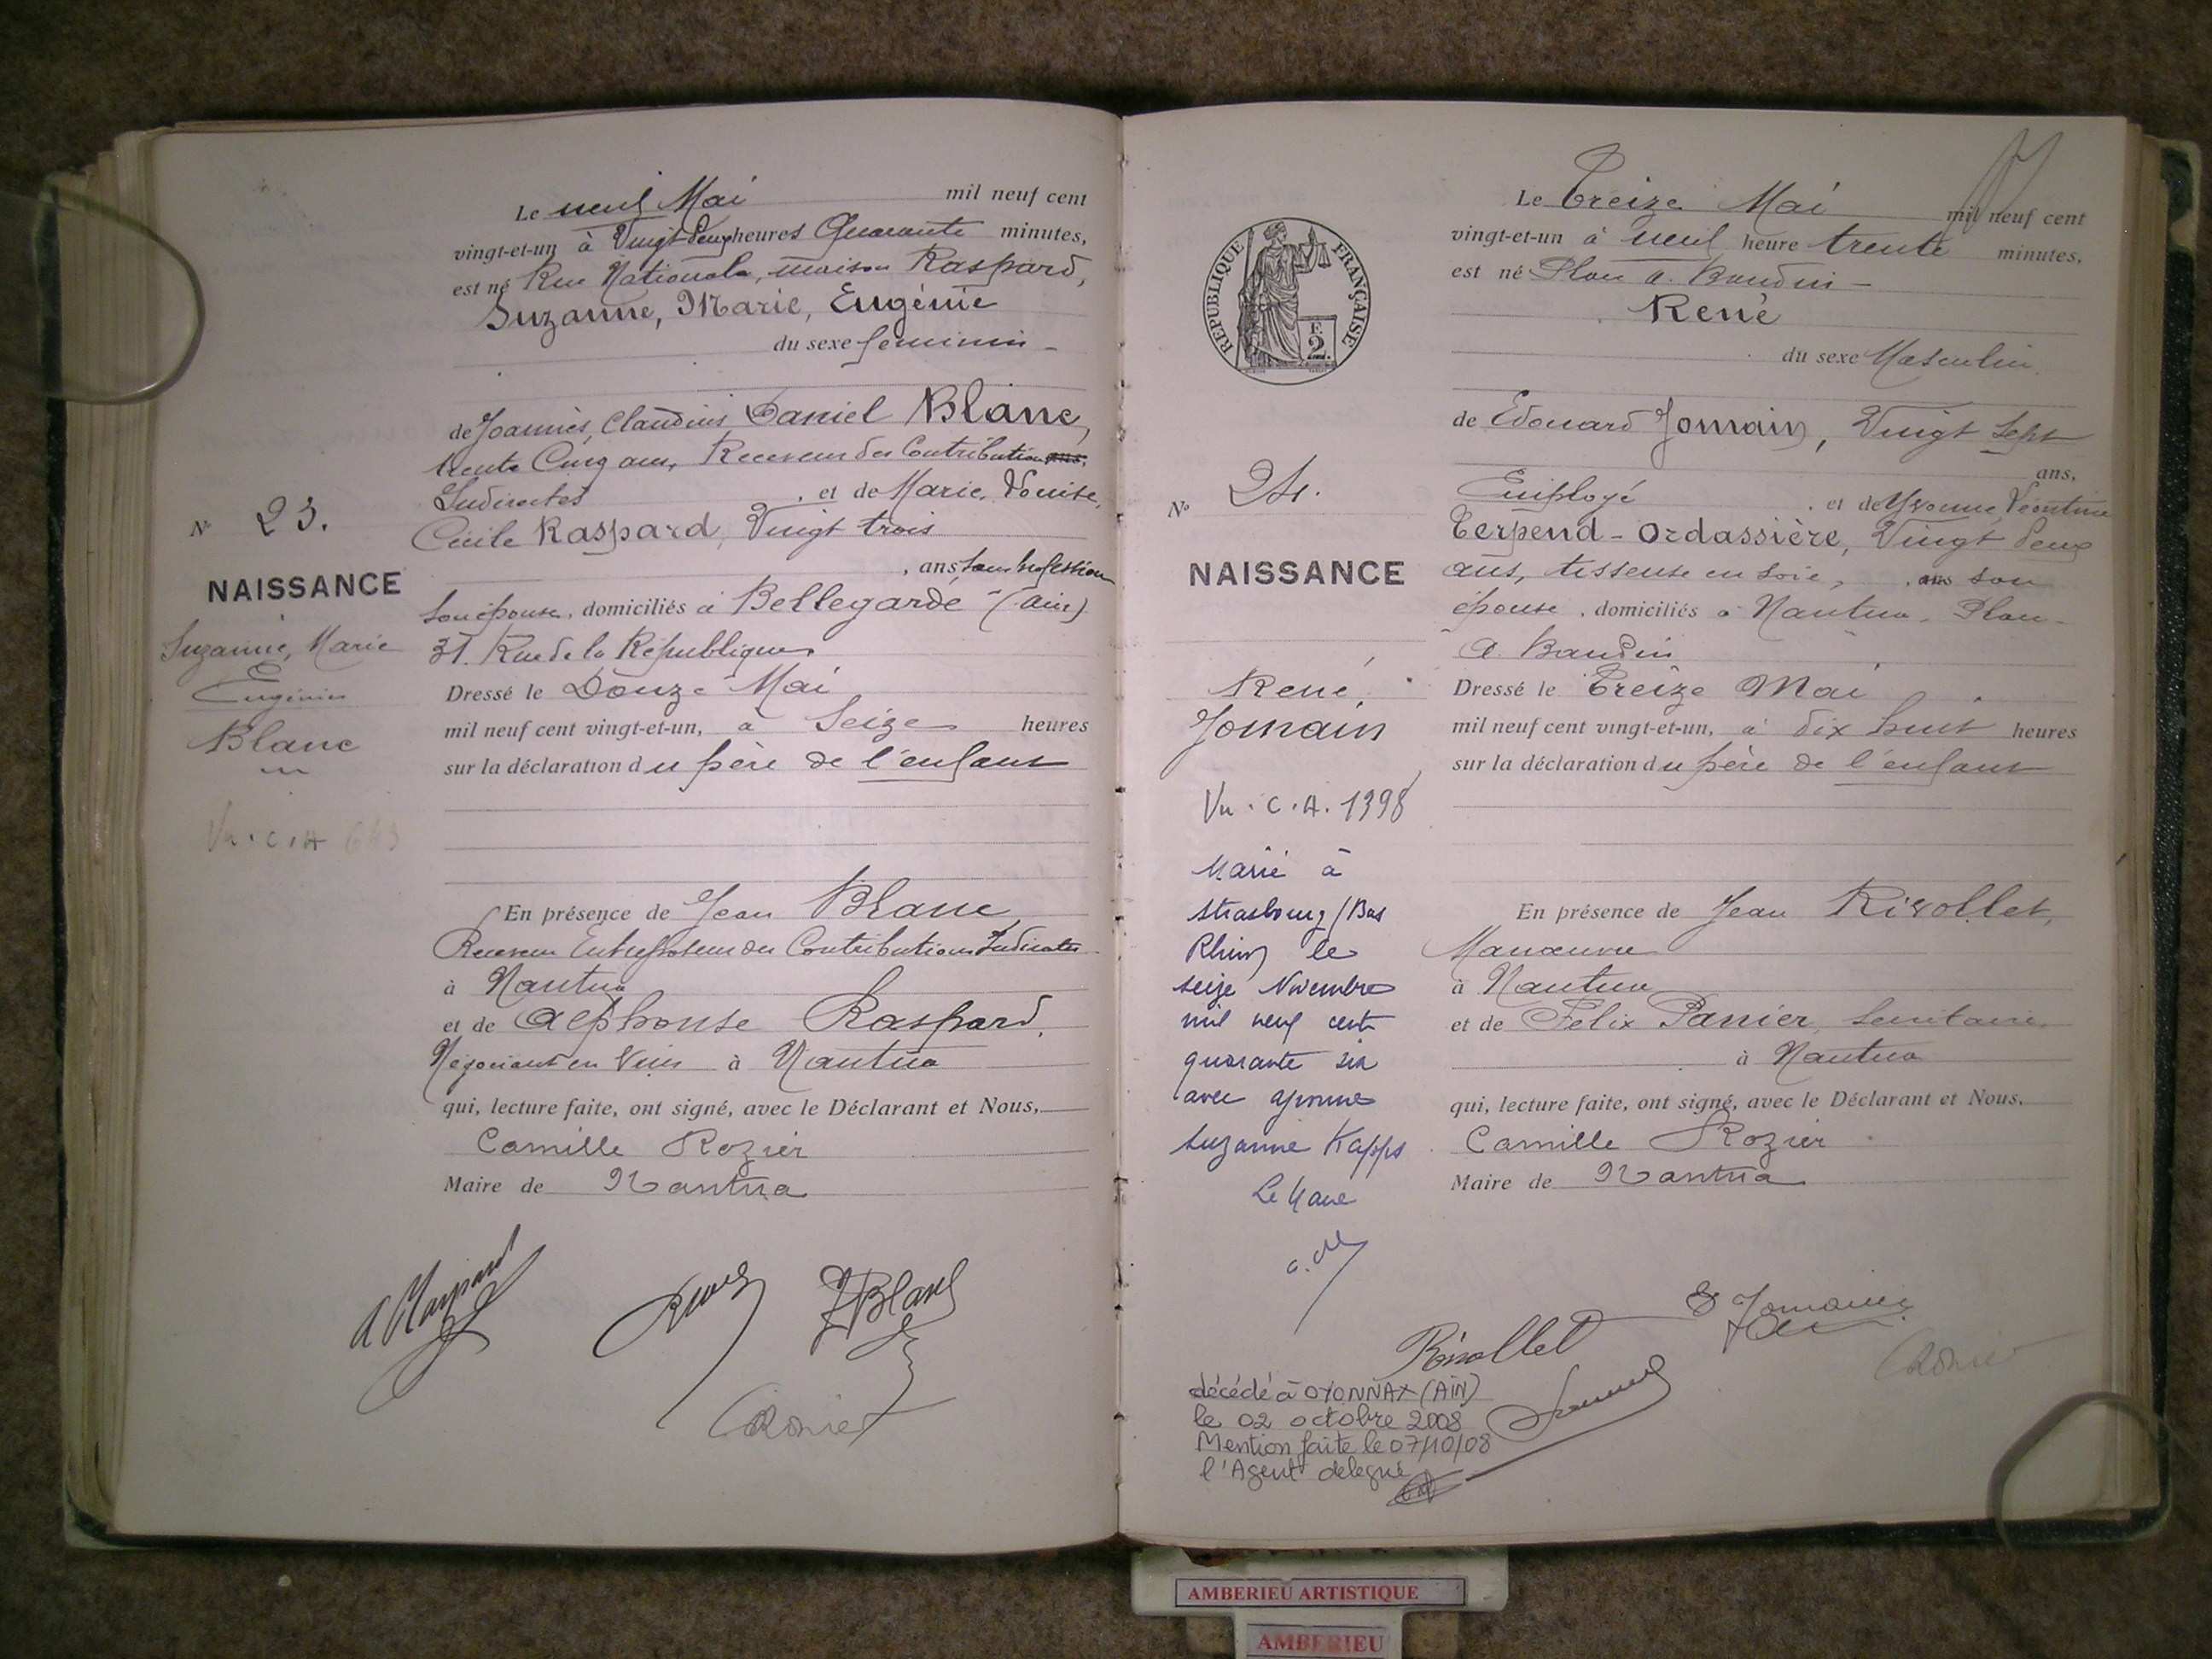 Le neuf Mai mil neuf cent
vingt-et-un à Vingt deux heures Quarante minutes,
est né Rue Nationale, maison Raspard,
Suzanne, Marie, Eugénie
du sexe féminin
de Joannès, Claudius, Daniel Blanc,
trente Cinq ans, Receveur des Contributions
Indirectes, et de Marie, Louise,
Cécile Raspard, Vingt trois
, ans, sans profession
son épouse, domiciliés à Bellegarde (Ain)
31. Rue de la République
Dressé le Douze Mai
mil neuf cent vingt-et-un, à Seize heures
sur la déclaration du père de l'enfant
En présence de Jean Blanc,
Receveur Entreposeur des Contributions Indirectes
à Nantua
et de Alphonse Raspard,
Négociant en Vins à Nantua
qui, lecture faite, ont signé, avec le Déclarant et Nous,
Camille Rozier
Maire de Nantua
N° 23.
NAISSANCE
Suzanne, Marie
Eugénie
Blanc
Vu. C. A
A Raspard
J Blanc
CRozier
RÉPUBLIQUE FRANÇAISE
F.
2.
N° 24.
NAISSANCE
René,
Jomain
Vu. C. A. 1398
Marié à
Strasbourg (Bas
Rhin) le
seize Novembre
mil neuf cent
quarante six
avec Yvonne
Suzanne Kapps
Le Maire
Le Treize Mai mil neuf cent
vingt-et-un à neuf heure trente minutes,
est né Place A. Baudin
René
du sexe Masculin
de Edouard Jomain, Vingt Sept
ans,
Employé, et de Yvonne, Léontine
Terpend-Ordassière, Vingt deux
ans, tisseuse en soie, ans son
épouse, domiciliés à Nantua, Place
A. Baudin
Dressé le Treize Mai
mil neuf cent vingt-et-un, à dix huit heures
sur la déclaration du père de l'enfant
En présence de Jean Rivollet,
Manœuvre
à Nantua
et de Félix Panier, Secrétaire
à Nantua
qui, lecture faite, ont signé, avec le Déclarant et Nous,
Camille Rozier
Maire de Nantua
Rivollet
E Jomain
CRozier
décédé à OYONNAX (AIN)
le 02 octobre 2008
Mention faite le 07/10/08
l'Agent délégué
AMBERIEU ARTISTIQUE
AMBERIEU